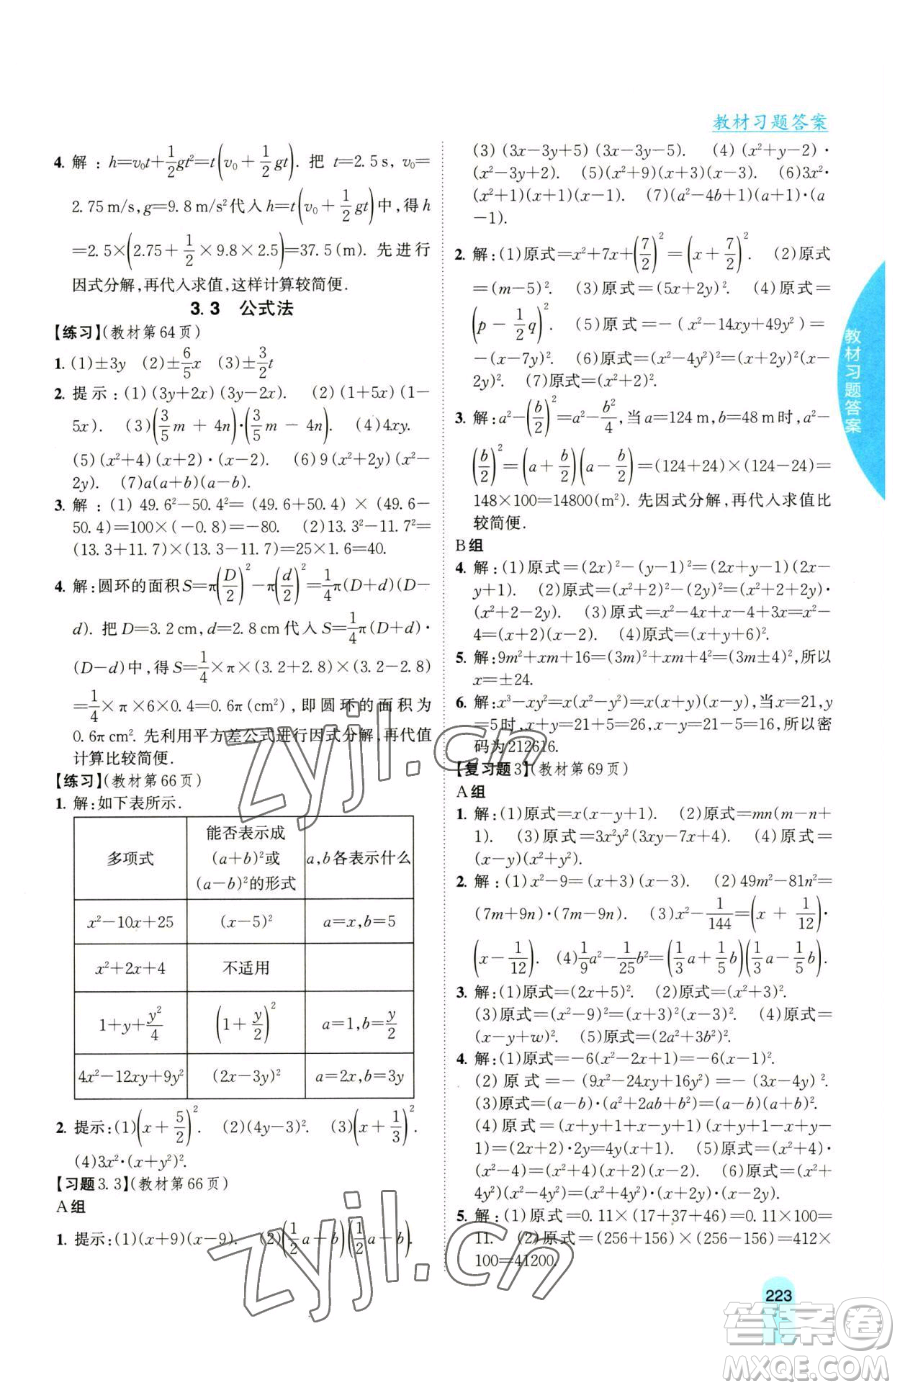 教材习题答案
4. 解：h=v₀t+\frac{1}{2}gt²=t(v₀+\frac{1}{2}gt). 把 t=2.5 s, v₀=
2.75 m/s, g=9.8 m/s²代入 h=t(v₀+\frac{1}{2}gt)中, 得 h
=2.5×(2.75+\frac{1}{2}×9.8×2.5)=37.5(m). 先进行
因式分解, 再代入求值, 这样计算较简便.
3.3 公式法
【练习】(教材第64页)
1. (1)±3y (2)±\frac{6}{5}x (3)±\frac{3}{2}t
2. 提示：(1)(3y+2x)(3y-2x). (2)(1+5x)(1-
5x). (3)(\frac{3}{5}m+4n)·(\frac{3}{5}m-4n). (4)4xy.
(5)(x²+4)(x+2)(x-2). (6)9(x²+2y)(x²-
2y). (7)a(a+b)(a-b).
3. 解：(1)49.6²-50.4²=(49.6+50.4)×(49.6-
50.4)=100×(-0.8)=-80. (2)13.3²-11.7²=
(13.3+11.7)×(13.3-11.7)=25×1.6=40.
4. 解：圆环的面积S=π(\frac{D}{2})²-π(\frac{d}{2})²=\frac{1}{4}π(D+d)(D-
d). 把 D=3.2 cm, d=2.8 cm代入 S=\frac{1}{4}π(D+d)·
(D-d)中, 得 S=\frac{1}{4}×π×(3.2+2.8)×(3.2-2.8)
=\frac{1}{4}×π×6×0.4=0.6π(cm²), 即圆环的面积为
0.6π cm². 先利用平方差公式进行因式分解, 再代值
计算比较简便.
【练习】(教材第66页)
1. 解：如下表所示.
多项式 能否表示成(a+b)²或(a-b)²的形式 a,b各表示什么
x²-10x+25 (x-5)² a=x,b=5
x²+2x+4 不适用
1+y+\frac{y²}{4} (1+\frac{y}{2})² a=1,b=\frac{y}{2}
4x²-12xy+9y² (2x-3y)² a=2x,b=3y
2. 提示：(1)(x+\frac{5}{2})². (2)(4y-3)². (3)(x+\frac{1}{3})².
(4)3x²·(x+y²)².
【习题3.3】(教材第66页)
A组
1. 提示：(1)(x+9)(x-9). (2)(\frac{1}{2}a+b)(\frac{1}{2}a-b).
(3)(3x-3y+5)(3x-3y-5). (4)(x²+y-2)·
(x²-3y+2). (5)(x²+9)(x+3)(x-3). (6)3x²·
(x²+1)(x+1)(x-1). (7)(a²-4b+1)(a+1)·(a
-1).
2. 解：(1)原式=x²+7x+(\frac{7}{2})²=(x+\frac{7}{2})². (2)原式
=(m-5)². (3)原式=(8x+2y)². (4)原式=
(p-\frac{1}{2}q)². (5)原式=-(x²-14xy+49y²)=
-(x-7y)². (6)原式=(x+y)²+2(x+y)+1=(x+y+1)².
3. 解：a²-(\frac{b}{2})²=a²-\frac{b²}{4}, 当 a=124 m, b=48 m时, a²-
(\frac{b}{2})²=(a+\frac{b}{2})(a-\frac{b}{2})=(124+24)×(124-24)=
148×100=14800(m²). 先因式分解, 再代入求值比
较简便.
B组
4. 解：(1)原式=(2x)²-(y-1)²=(2x+y-1)(2x-
y+1). (2)原式=(x²+2)²-(2y)²=(x²+2+2y)·
(x²+2-2y). (3)原式=x³(x+4)-4x(x+4)=
x(x+4)(x+2)(x-2). (4)原式=(x+y-6)².
5. 解：9m²+xm+16=(3m)²+xm+4²=(3m±4)², 所以
x=±24.
6. 解：x³-xy²=x(x²-y²)=x(x+y)(x-y), 当 x=21, y
=5时, x+y=21+5=26, x-y=21-5=16, 所以密
码为212616.
【复习题3】(教材第69页)
A组
1. 解：(1)原式=x(x-y+1). (2)原式=mn(m-n+
1). (3)原式=3x²y²(2x-y+3).
2. 解：(1)x²-9=(x+3)(x-3). (2)49m²-81n²=
(7m+9n)(7m-9n). (3)x²-\frac{1}{144}=(x+\frac{1}{12})·
(x-\frac{1}{12}). (4)\frac{1}{9}a²-\frac{1}{25}b²=(\frac{1}{3}a+\frac{1}{5}b)(\frac{1}{3}a-\frac{1}{5}b).
3. 解：(1)原式=(2x+5)². (2)原式=(2x-5y)².
(3)原式=(x²-9)²=(x+3)²(x-3)². (4)原式=
(x-y+w)². (5)原式=(2a²+3b²)².
4. 解：(1)原式=-6(x²-2x+1)=-6(x-1)².
(2)原式=-(9x²-24xy+16y²)=-(3x-4y)².
(3)原式=(a-b)(a²+2ab+b²)=(a-b)(a+b)².
(4)原式=(x+2y+1+x-2y+1)(x+2y+1-x+
2y-1)=(2x+2)·4y=8y(x+1). (5)原式=(x²-
4y²)(x²+4y²)=(x+2y)(x-2y)(x²+4y²).
5. 解：(1)原式=0.11×(17+37+46)=0.11×100=
11. (2)原式=(256+156)×(256-156)=412×
100=41200.
教材习题答案
223
zyjl.cn
zyjl.cn
答案圈
MXQE.COM